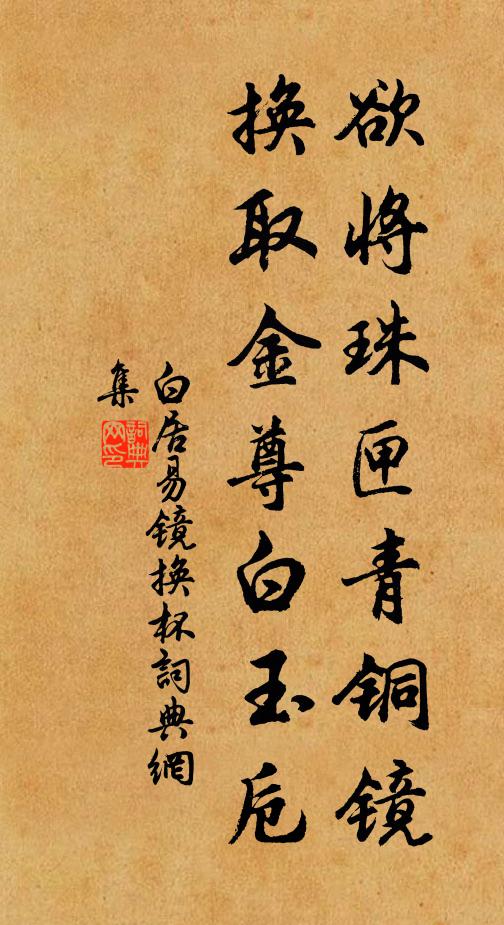 欲将珠匣青铜镜
换取金尊白玉卮
白居易镜换杯詞典網
集
詞典网印